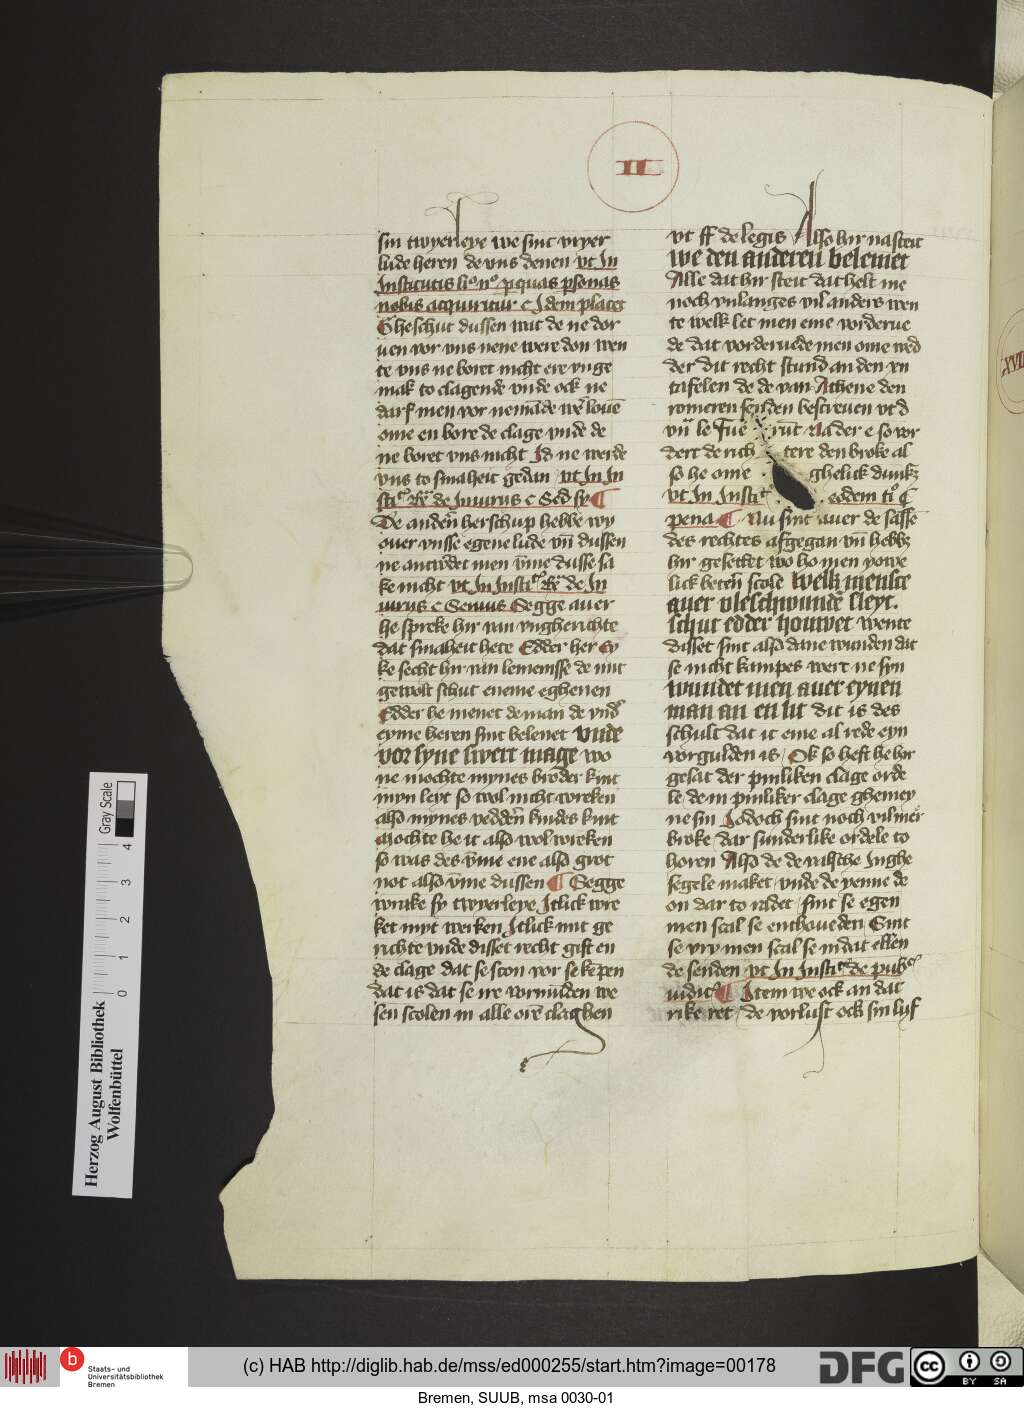 II
sin twyerleye we sint vryer
lude heren de vns denen vt In
Institutis li° n° p quas psonas
nobis acquiritur c Idem placet
Gheschut dussen wat de ne dor
uen vor vns nene were don wen
te vns ne boret nicht ere vnge
mak to clagende vnde ock ne
darf men vor nemāde we louē
ome en bore de clage vnde de
ne boret vns nicht Id ne werde
vns to smaheit gedan vt In In
de Iniuriis c Sed sy ¶
De anderē herschup hebbe wy
ouer vnsse egene lude vn̄ dussen
ne antwdet men v̄me dusse sa
ke nicht vt In Insti de In
iurus c Seruus Segge auer
he spreke hir van vngherichte
dat smaheit hete Edder her Ey
ke secht hir van lemenisse de mit
gewolt schut eneme eghenen
Edder he menet de man de vnd
eyme heren sint belenet Vnde
vor syne swert mage wo
ne mochte mynes broder kint
myn leyt so wol nicht wreken
also mynes vedderē kindes kint
Mochte he it also wol wreken
so was des v̄me ene also grot
not also v̄me dussen ¶ Segge
wrake sy twyerleye Itlick wre
ket myt werken Itlick mit ge
richte vnde disset recht gift en
de clage dat se scon vor se kepen
dat is dat se ire vormūden we
sen scolen in alle orē claghen
vt ff de legis Also hir na steit
we den anderen belemet
Alle dat hir steit dat helt me
noch vnlanges vil anders wen
te welk let men eme vorderue
de dat vorderuede men ome wed
der dit recht stund an den xn
tafelen de de van Athene den
romeren senden bescreuen vt d
vn̄ le Fue rūt Na der e so vor
dert de rich tere den broke al
so he ome ghelick dunkz
vt In Insti eodem ti° C
pena ¶ Nu sint auer de sasse
des rechtes afgegan vn̄ hebbz
hir gesettet wo ho men yowe
lick beterē scole Welk mensce
auer vleschwunde sleyt.
schut edder houwet wente
disset sint also dane wunden dat
se nicht kampes wert ne syn
wundet men auer eynen
man an en lit dit is des
schult dat it eme al rede eyn
vorgulden is Ok so heft he hir
gesat der pinliken clage orde
le dem pinliker clage ghemey
ne sin Iodoch sint noch vilmer
broke dar sunderlike ordele to
horen Also de de valsche Inghe
segele maket vnde de penne de
on dar to radet sint se egen
men scal se enthoueden Sint
se vry men scal se in dat ellēn
de senden vt In Insti de pub
iudic ¶ Item we ock an dat
rike ret de vorlust ock sin lyf
XVII
Herzog August Bibliothek
Wolfenbüttel
0 1 2 3 4
Gray Scale
b
Staats- und
Universitätsbibliothek
Bremen
(c) HAB http://diglib.hab.de/mss/ed000255/start.htm?image=00178
DFG
cc BY SA
Bremen, SUUB, msa 0030-01